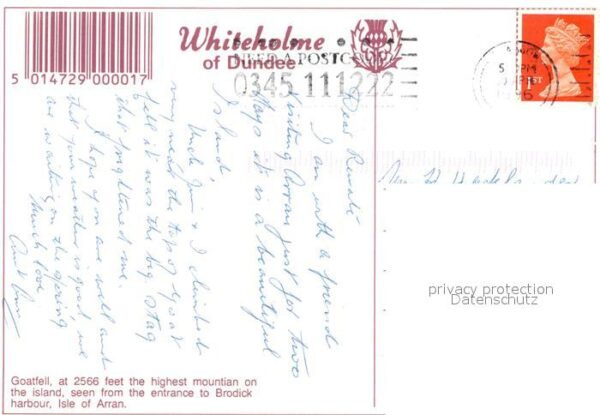 Whiteholme
of Dundee
NEED A POSTCODE
0345 111222
5 014729 000017
5 PM
1996
1ST
Dear
I am with a friend
visiting Arran just for two
days it is a beautiful
Island.
Uncle Jim & I climbed
very near the top of Goat
fell it was the big stag
that frightened me.
I hope you are well and
that your weather is good, we
are waiting on the spring
Much love
Aunt
privacy protection
Datenschutz
Goatfell, at 2566 feet the highest mountian on
the island, seen from the entrance to Brodick
harbour, Isle of Arran.